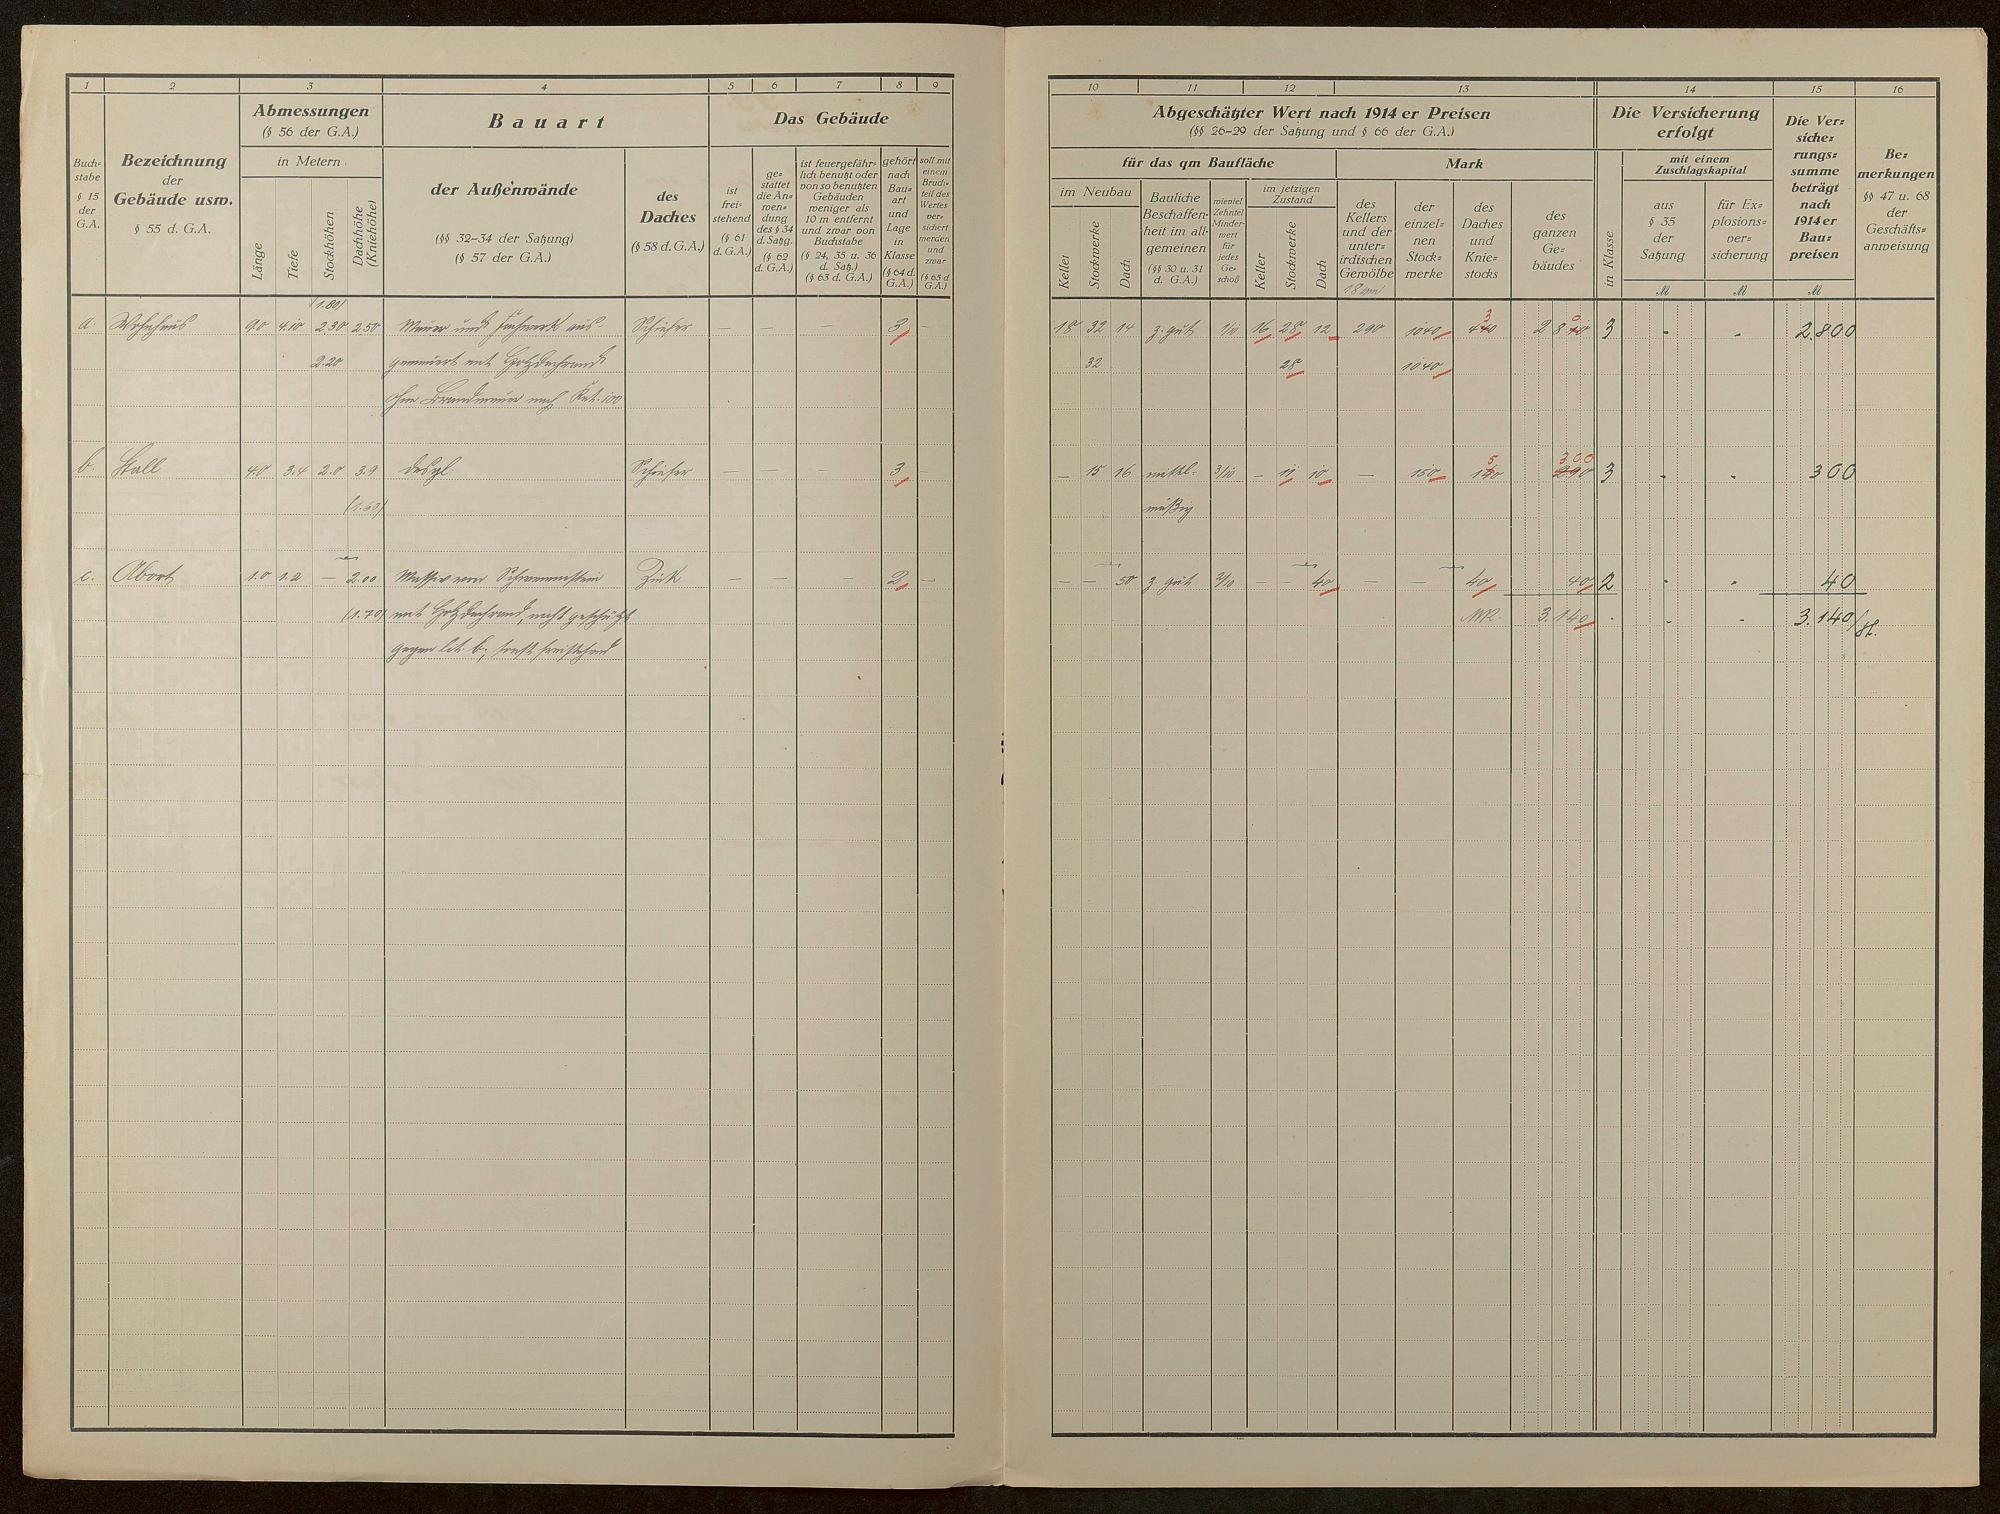 1 2 3 4 5 6 7 8 9
Abmessungen
(§ 56 der G.A.)
in Metern
Bauart
Das Gebäude
Buch-
stabe
§ 15
der
G.A.
Bezeichnung
der
Gebäude usw.
§ 55 d. G.A.
Länge
Tiefe
Stockhöhen
Dachhöhe
(Kniehöhe)
der Außenwände
(§§ 32–34 der Satzung)
(§ 57 der G.A.)
des
Daches
(§ 58 d. G.A.)
ist
frei-
stehend
(§ 61
d. G.A.)
ge-
stattet
die An-
wen-
dung
des § 34
d. Satzg.
(§ 62
d. G.A.)
ist feuergefähr-
lich benutzt oder
von so benutzten
Gebäuden
weniger als
10 m entfernt
und zwar von
Buchstabe
(§ 24, 35 u. 36
d. Satz.)
(§ 63 d. G.A.)
gehört
nach
Bau-
art
und
Lage
in
Klasse
(§ 64 d.
G.A.)
soll mit
einem
Bruch-
teil des
Wertes
ver-
sichert
werden
und
zwar
(§ 65 d
G.A.)
(1.80)
a. Wohnhaus 9.0 4.10 2.30 2.50 Mauer und Fachwerk aus- Schiefer — — — 3 —
2.20 gemauert mit Holzdachrand
ohne Brandmauer nach Kat. 100
b. Stall 4.0 3.4 2.0 3.9 desgl Schiefer — — — 3 —
(1.60)
c. Abort 1.0 1.2 — 2.00 Massiv von Schwemmstein Zink — — — 2 —
(1.70) mit Holzdachrand, nicht geschützt
gegen lit. b, sonst freistehend
10 11 12 13 14 15 16
Abgeschätzter Wert nach 1914er Preisen
(§§ 26–29 der Satzung und § 66 der G.A.)
für das qm Baufläche
Mark
im Neubau
Keller
Stockwerke
Dach
Bauliche
Beschaffen-
heit im all-
gemeinen
(§§ 30 u. 31
d. G.A.)
wieviel
Zehntel
Minder-
wert
für
jedes
Ge-
schoß
im jetzigen
Zustand
Keller
Stockwerke
Dach
des
Kellers
und der
unter-
irdischen
Gewölbe
18 qm
der
einzel-
nen
Stock-
werke
des
Daches
und
Knie-
stocks
des
ganzen
Ge-
bäudes
Die Versicherung
erfolgt
in Klasse
mit einem
Zuschlagskapital
aus
§ 35
der
Satzung
M
für Ex-
plosions-
ver-
sicherung
M
Die Ver-
siche-
rungs-
summe
beträgt
nach
1914er
Bau-
preisen
M
Be-
merkungen
§§ 47 u. 68
der
Geschäfts-
anweisung
18 32 14 z. gut 1/10 16 28 12 290 1040 440 3 2810 0 3 - - 2.800
32 28 1040
— 15 16 mittel- 3/10 — 11 10 — 150 140 5 290 300 3 - - 300
mäßig
— — 50 z. gut 2/10 — — 40 — — 40 40 2 - - 40
3.140 - - - 3.140